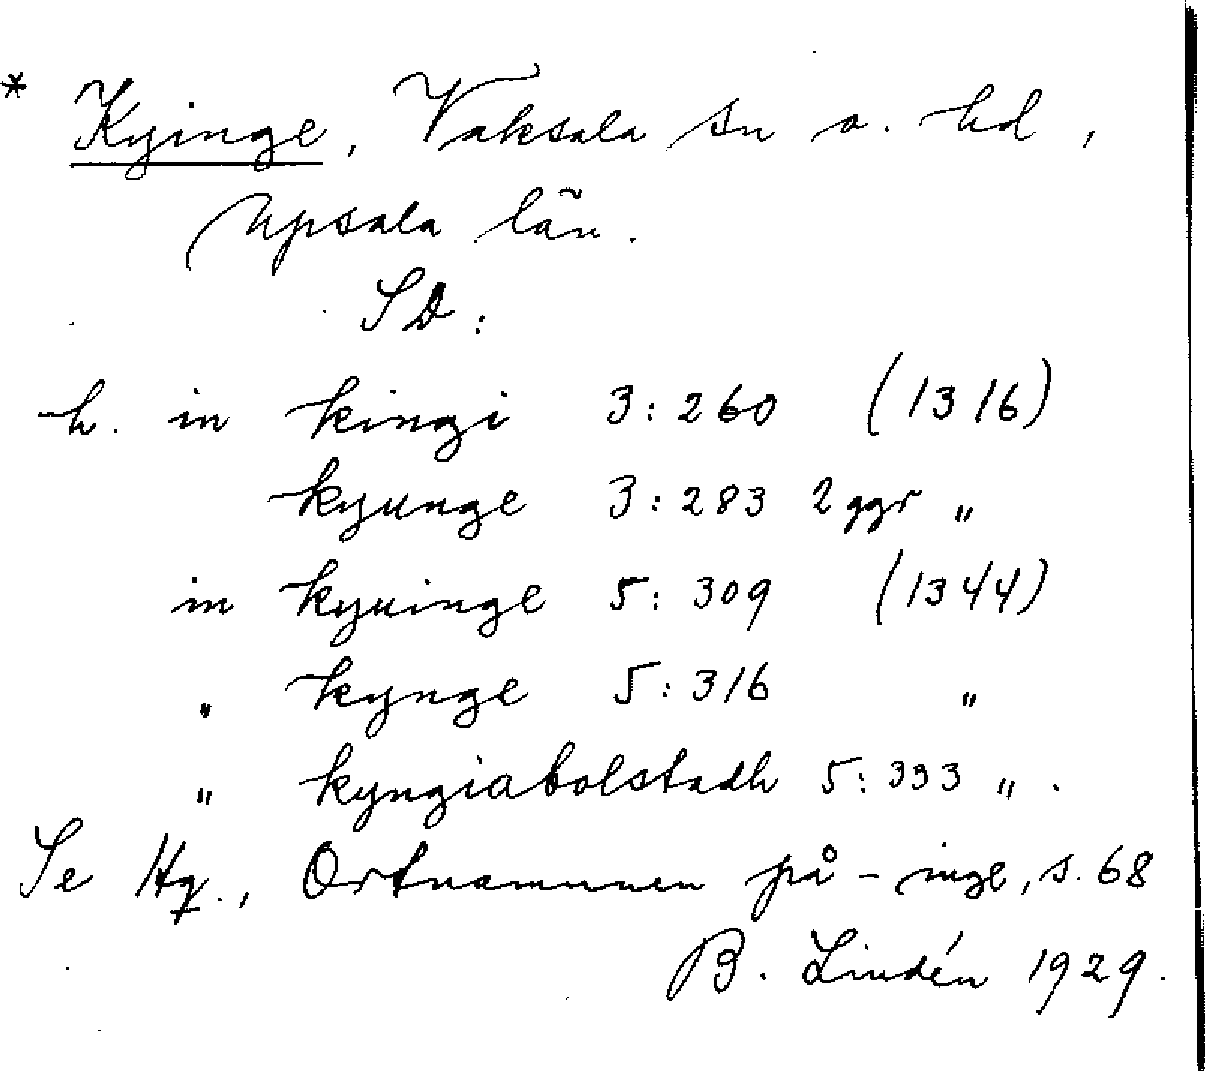 * Kyinge, Vaksala sn o. hd,
Upsala län.
SD:
h. in kingi 3:260 (1316)
kyunge 3:283 2 ggr "
in kyuinge 5:309 (1344)
" kynge 5:316 "
" kyngiabolstadh 5:333 ".
Se Hq., Ortnamnen på -inge, s. 68
B. Lindén 1929.